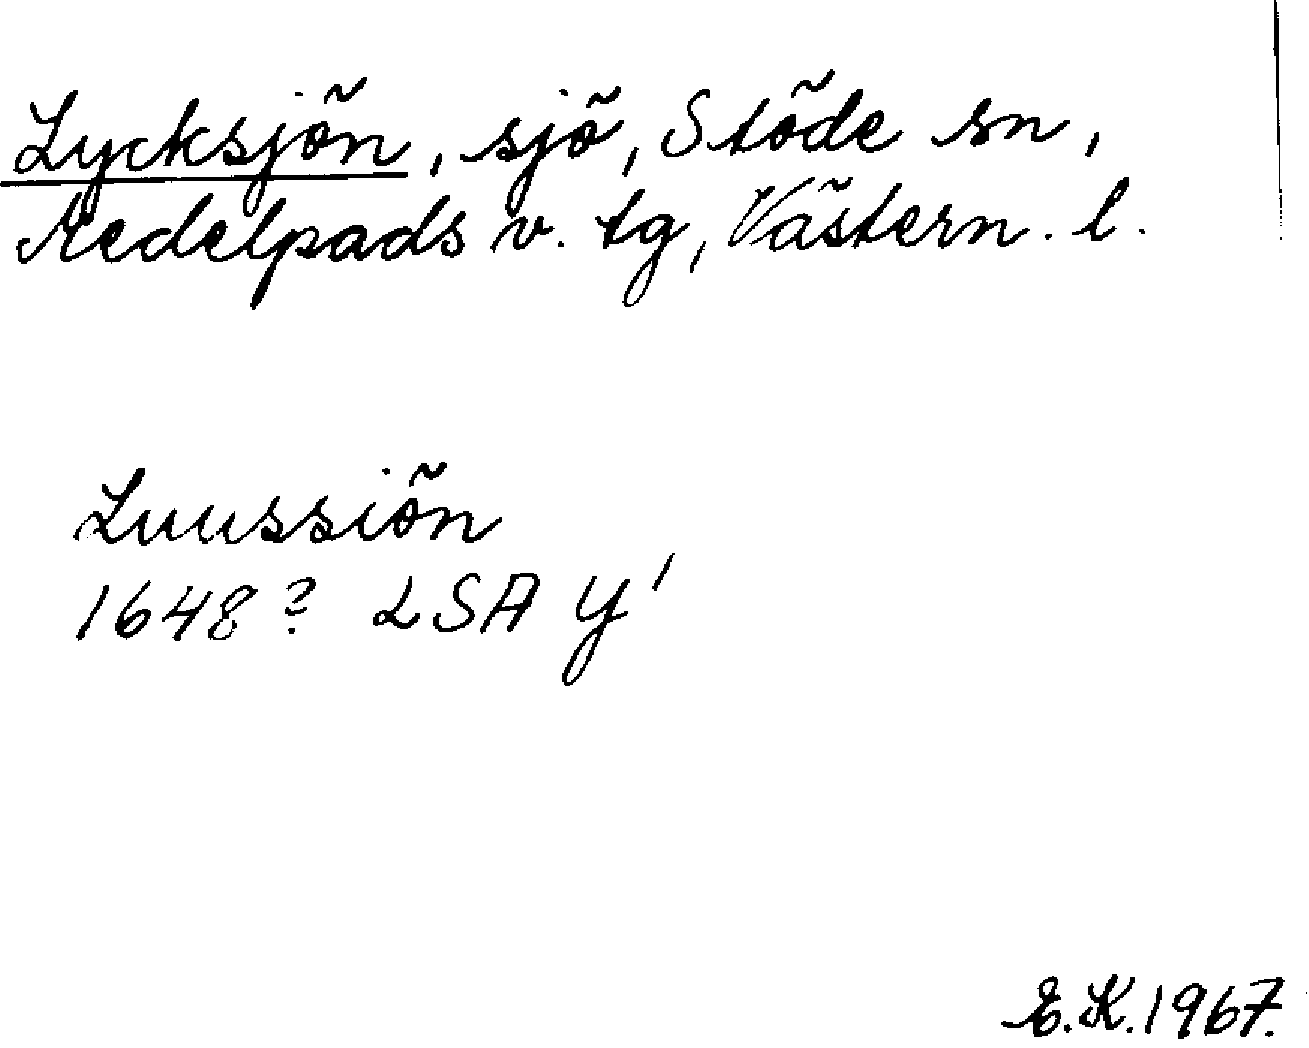 Lycksjön, sjö, Stöde sn,
Medelpads v. tg, Västern. l.
Luussiön
1648? LSA Y¹
E.K. 1967.